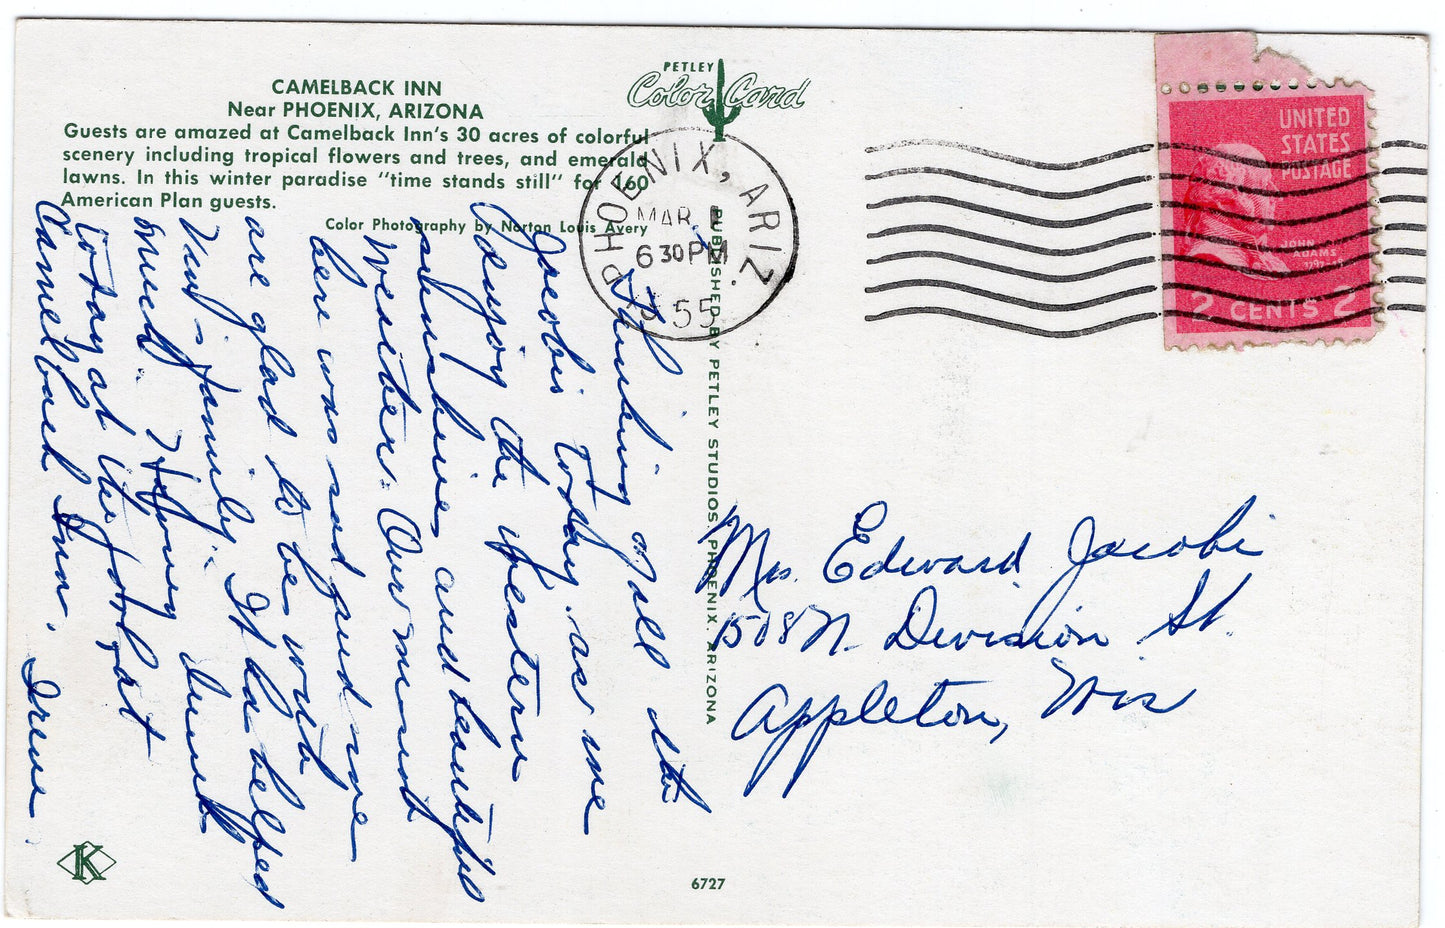 CAMELBACK INN
Near PHOENIX, ARIZONA
Guests are amazed at Camelback Inn's 30 acres of colorful
scenery including tropical flowers and trees, and emerald
lawns. In this winter paradise "time stands still" for 160
American Plan guests.
Color Photography by Norton Louis Avery
PETLEY
Color Card
PHOENIX, ARIZ.
MAR 1
6 30 PM
1955
UNITED
STATES
POSTAGE
JOHN
ADAMS
2 CENTS 2
PUBLISHED BY PETLEY STUDIOS, PHOENIX, ARIZONA
Thinking of all the
Jacobis today as we
enjoy the Western
sunshine, and beautiful
Our
here was sad and we
are glad to be with
family. It has helped
much.
today at the
Camelback Inn. Irene.
Mrs. Edward Jacobi
1508 N. Division St.
Appleton, Wis
K
6727